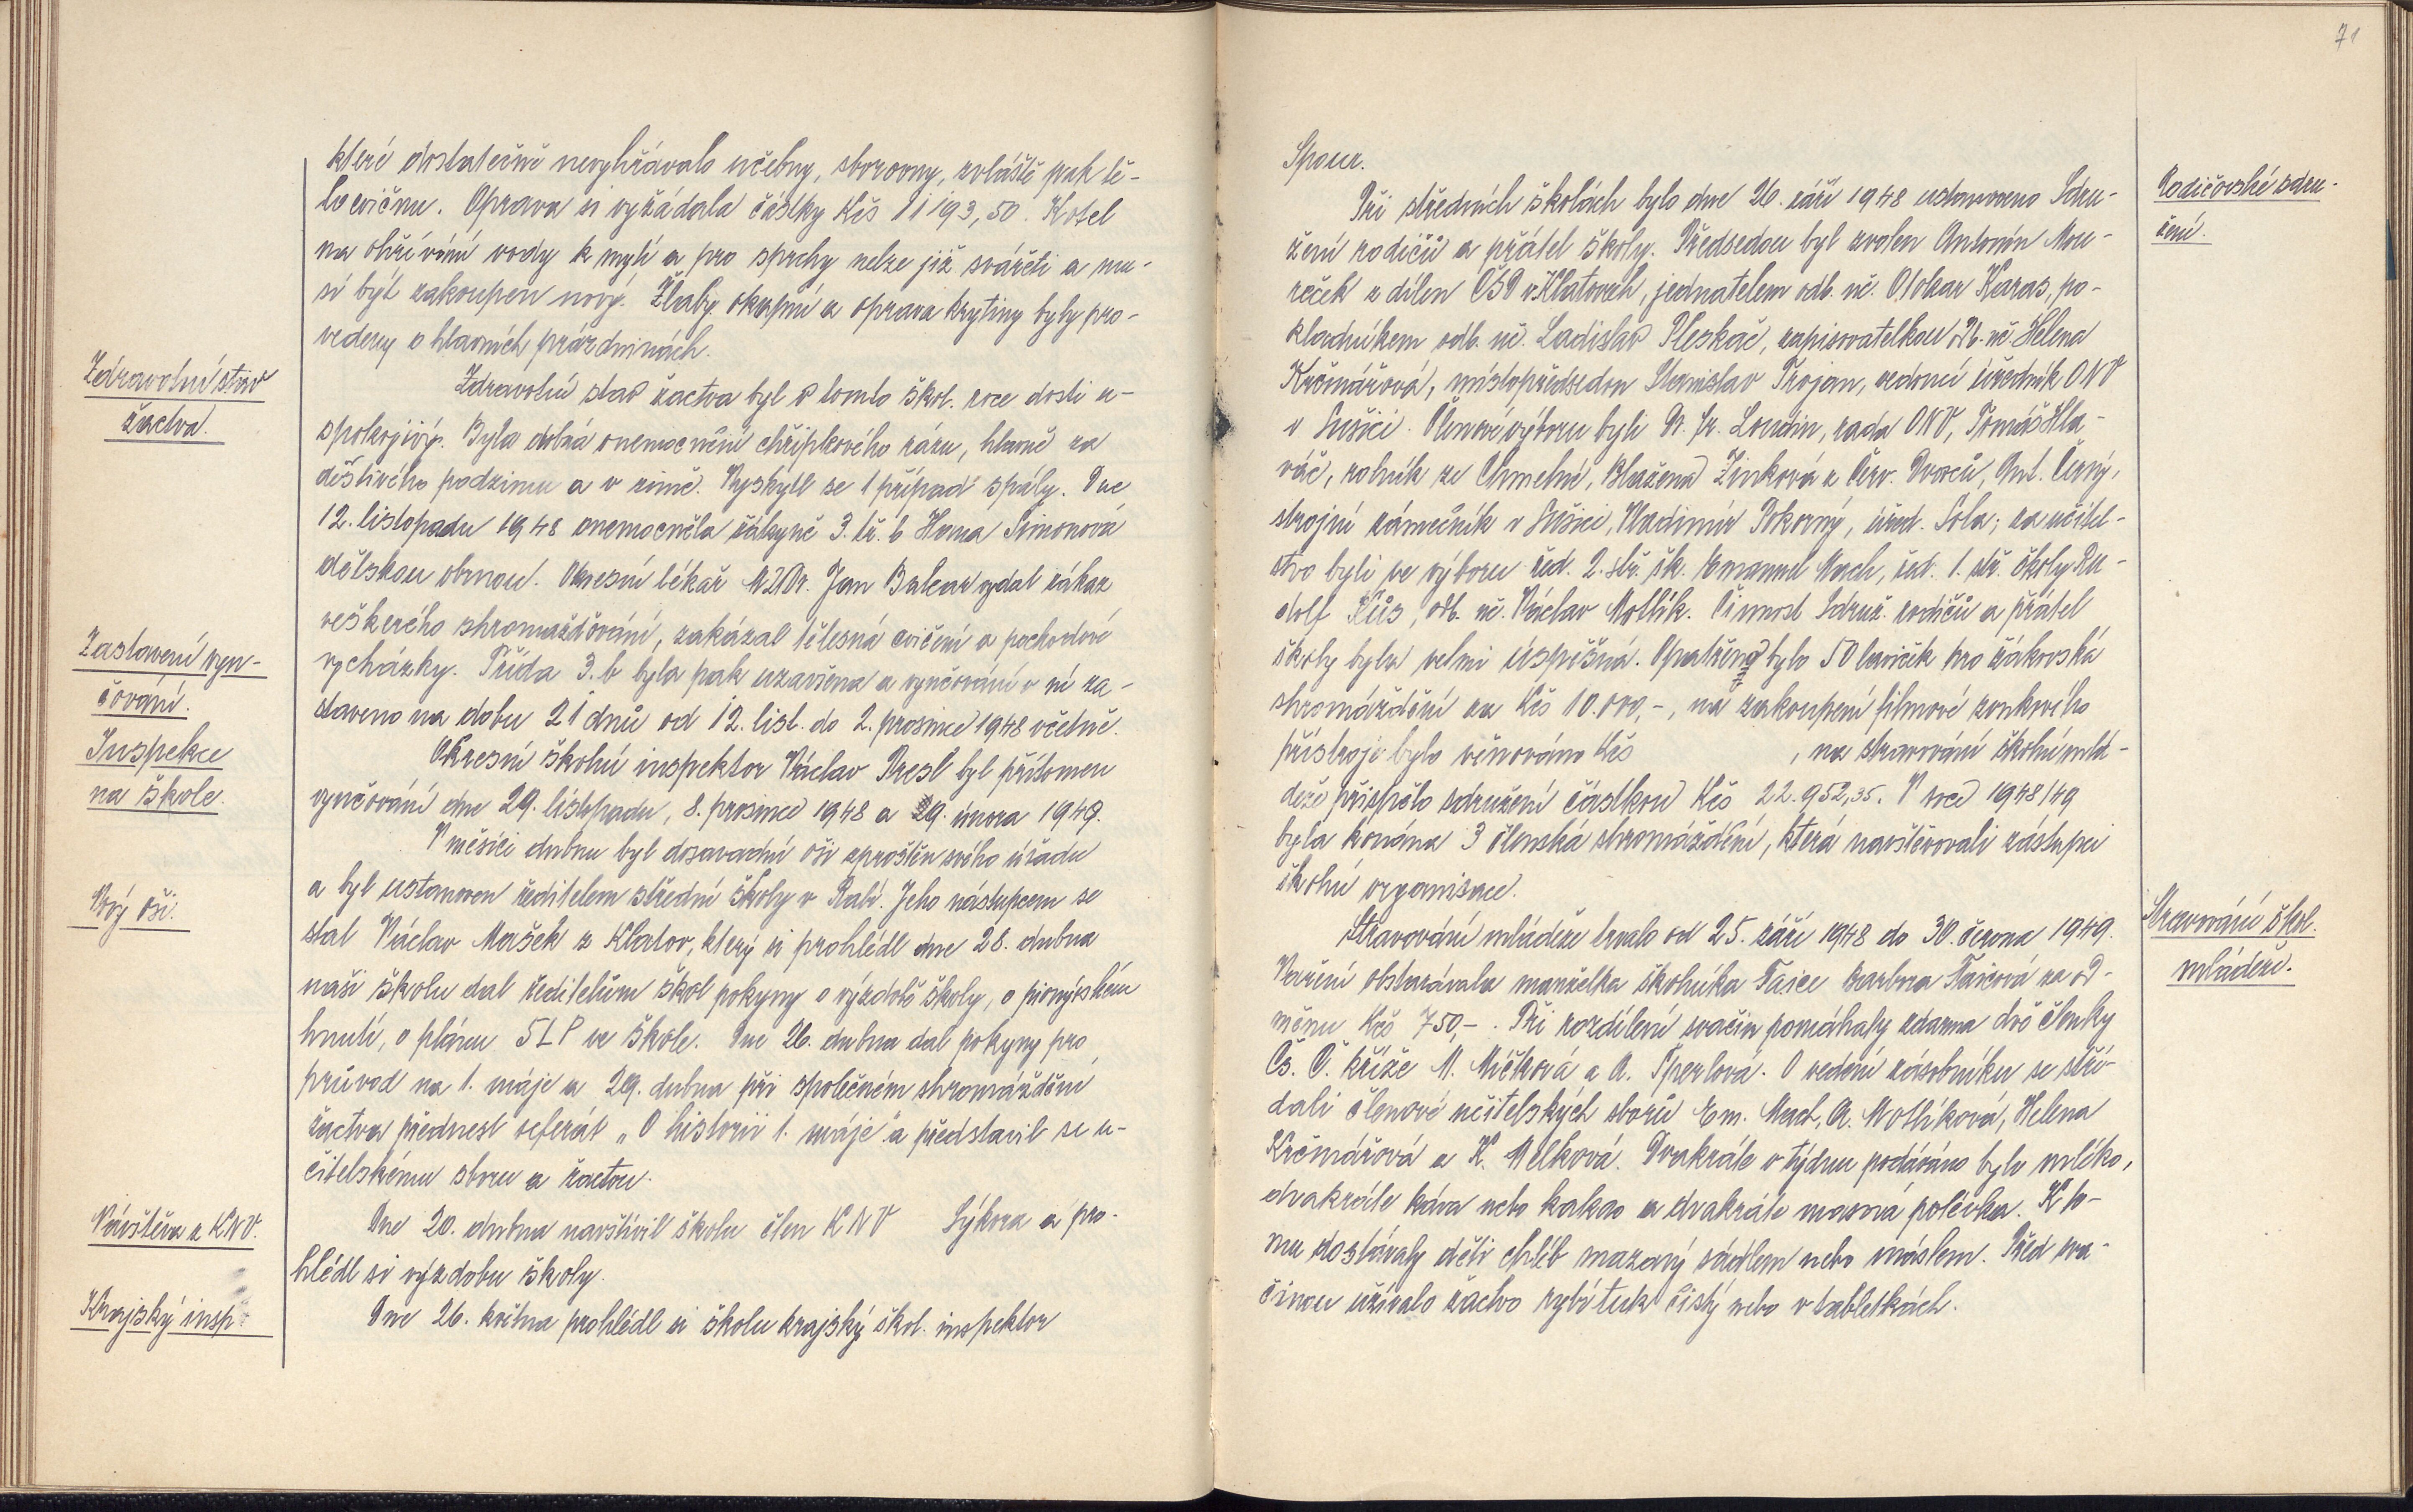 které dostatečně nevyhřávalo učebny, sborovny, zvláště pak tě-
locvičnu. Oprava si vyžádala částky Kčs 11193,50. Kotel
na ohřívání vody k mytí a pro sprchy nelze již svářeti a mu-
sí být zakoupen nový. Žlaby okapní a oprava krytiny byly pro-
vedeny o hlavních prázdninách.
Zdravotní stav
žactva.
Zdravotní stav žactva byl v tomto škol. roce dosti u-
spokojivý. Byla četná onemocnění chřipkového rázu, hlavně za
deštivého podzimu a v zimě. Vyskytl se 1 případ spály. Dne
12. listopadu 1948 onemocněla žákyně 3. tř. b Hana Šimonová
dětskou obrnou. Okresní lékař MUDr. Jan Balcar vydal zákaz
veškerého shromažďování, zakázal tělesná cvičení a pochodové
Zastavení vyu-
čování.
vycházky. Třída 3. b byla pak uzavřena a vyučování v ní za-
staveno na dobu 21 dnů od 12. list. do 2. prosince 1948 včetně.
Inspekce
na škole.
Okresní školní inspektor Václav Presl byl přítomen
vyučování dne 29. listopadu, 8. prosince 1948 a 9. února 1949.
V měsíci dubnu byl dosavadní oši zproštěn svého úřadu
Nový oši.
a byl ustanoven ředitelem střední školy v Rabí. Jeho nástupcem se
stal Václav Mašek z Klatov, který si prohlédl dne 28. dubna
naši školu dal ředitelům škol pokyny o výzdobě školy, o pionýrském
hnutí, o plánu 5LP ve škole. Dne 26. dubna dal pokyny pro
průvod na 1. máje a 29. dubna při společném shromáždění
žactva přednesl referát „O historii 1. máje" a představil se u-
čitelskému sboru a žactvu.
Návštěva z KNV.
Dne 20. dubna navštívil školu člen KNV Sýkora a pro-
hlédl si výzdobu školy.
Krajský insp.
Dne 26. května prohlédl si školu krajský škol. inspektor
71
Spour.
Rodičovské sdru-
žení.
Při středních školách bylo dne 26. září 1948 ustanoveno Sdru-
žení rodičů a přátel školy. Předsedou byl zvolen Antonín Mou-
reček z dílen ČSD v Klatovech, jednatelem odb. uč. Otokar Karas, po-
kladníkem odb. uč. Ladislav Pleskač, zapisovatelkou odb. uč. Helena
Krčmářová, místopředsedou Stanislav Trojan, vedoucí úředník ONV
v Sušici. Členové výboru byli Dr. Fr. Loudin, rada ONV, Tomáš Hla-
váč, rolník ze Chmelné, Blažena Zinková z Červ. Dvorců, Ant. Černý,
strojní zámečník v Sušici, Vladimír Pokorný, úřed. Sola; za učitel-
stvo byli ve výboru řed. 2. stř. šk. Emanuel Mach, řed. 1. stř. školy Ru-
dolf Kůs, odb. uč. Václav Motlík. Činnost Sdruž. rodičů a přátel
školy byla velmi úspěšná. Opatřeno bylo 50 laviček pro žákovská
shromáždění za Kčs 10.000,-, na zakoupení filmové zvukového
přístroje bylo věnováno Kčs , na stravování školní mlá-
deže přispělo sdružení částkou Kčs 22.952,35. V roce 1948/49
byla konána 3 členská shromáždění, která navštěvovali zástupci
školní organisace.
Stravování škol.
mládeže.
Stravování mládeže trvalo od 25. září 1948 do 30. června 1949.
Vaření obstarávala manželka školníka Faice Barbora Faicová za od-
měnu Kčs 750,-. Při rozdílení svačin pomáhaly zdarma dvě členky
Čs. Č. kříže M. Míčková a A. Šperlová. O vedení zásobníku se stří-
dali členové učitelských sborů Em. Mach, A. Motlíková, Helena
Krčmářová a K. Melková. Dvakráte v týdnu podáváno bylo mléko,
dvakráte káva nebo kakao a dvakráte masová polévka. K to-
mu dostávaly děti chléb mazaný sádlem nebo máslem. Před sva-
činou užívalo žactvo rybí tuk čistý nebo v tabletkách.